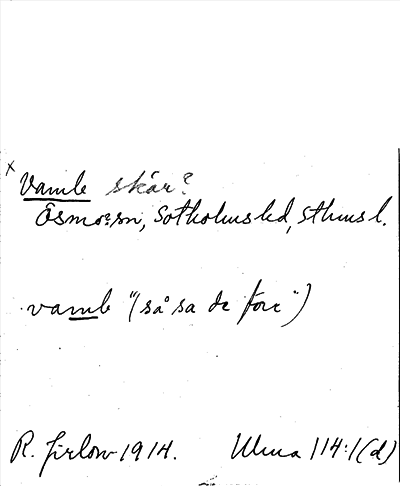 x Vamle skär?
Ösmo sn, Sotholms hd, Sthms l.
vamle "(så sa de förr")
R. Jirlow 1914. Ulma 114:1(d)